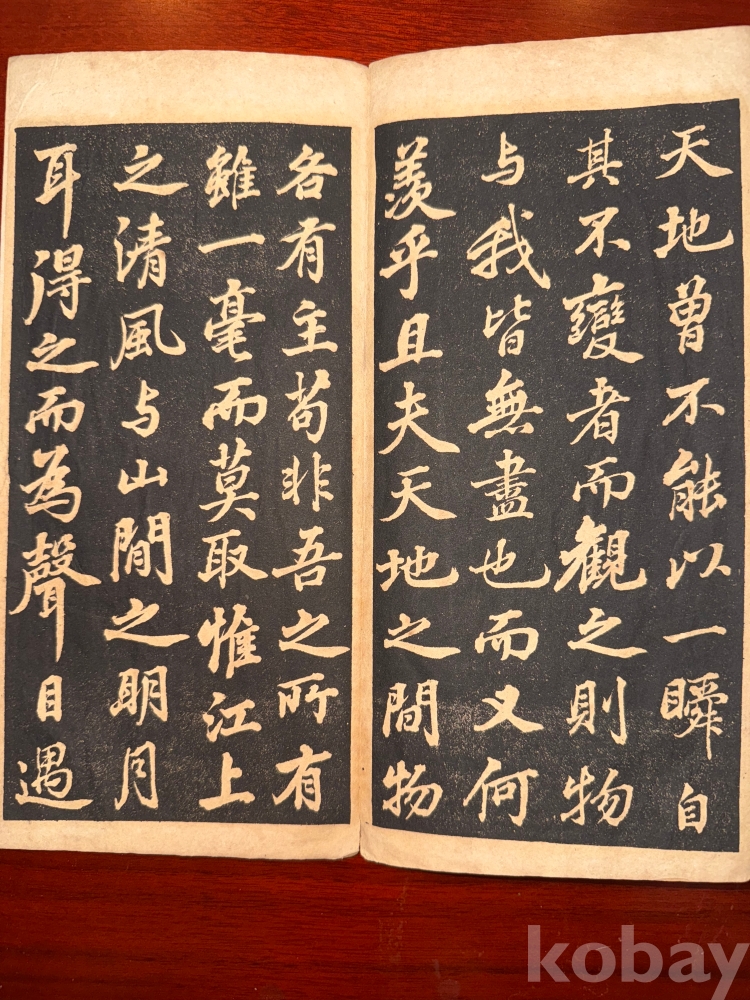 天地曾不能以一瞬自
其不變者而觀之則物
与我皆無盡也而又何
羨乎且夫天地之間物
各有主苟非吾之所有
雖一毫而莫取惟江上
之清風与山間之明月
耳得之而為聲目遇
kobay